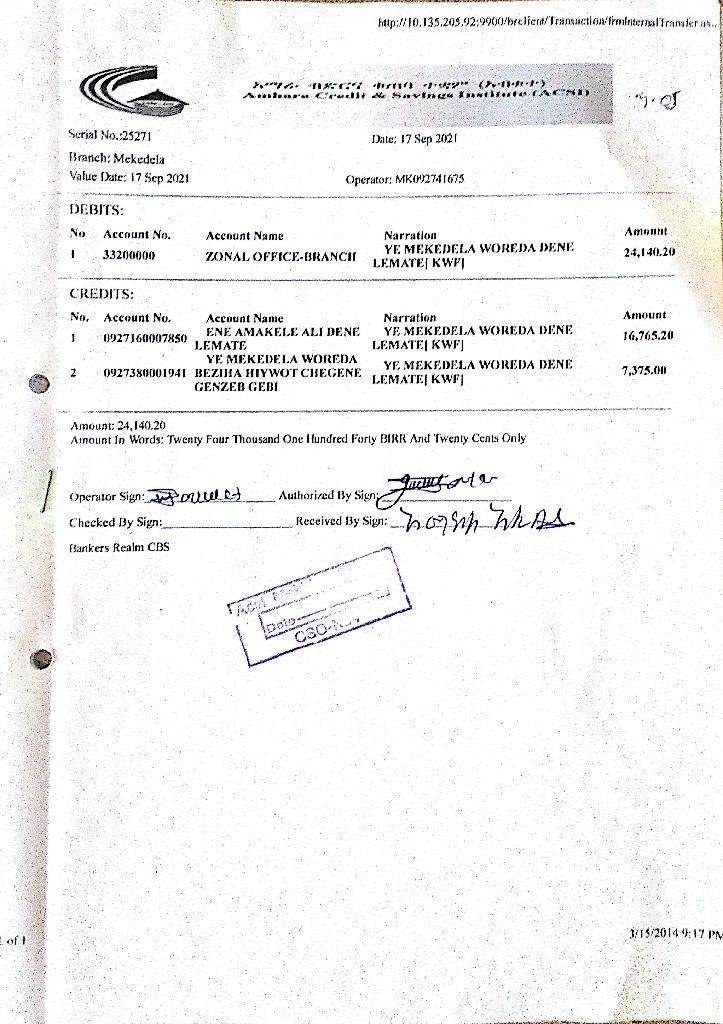 http://10.135.205.92:9900/brclient/Transaction/frmInternalTransfer.as...
Amhara Credit & Savings Institute (ACSI)
Serial No.:25271
Date: 17 Sep 2021
Branch: Mekedela
Value Date: 17 Sep 2021
Operator: MK092741675
DEBITS:
No Account No. Account Name Narration Amount
1 33200000 ZONAL OFFICE-BRANCH YE MEKEDELA WOREDA DENE LEMATE[ KWF] 24,140.20
CREDITS:
No. Account No. Account Name Narration Amount
1 0927160007850 ENE AMAKELE ALI DENE LEMATE YE MEKEDELA WOREDA DENE LEMATE[ KWF] 16,765.20
2 0927380001941 YE MEKEDELA WOREDA BEZIHA HIYWOT CHEGENE GENZEB GEBI YE MEKEDELA WOREDA DENE LEMATE[ KWF] 7,375.00
Amount: 24,140.20
Amount In Words: Twenty Four Thousand One Hundred Forty BIRR And Twenty Cents Only
Operator Sign: Authorized By Sign:
Checked By Sign: Received By Sign:
Bankers Realm CBS
Date
of 1
3/15/2014 9:17 PM